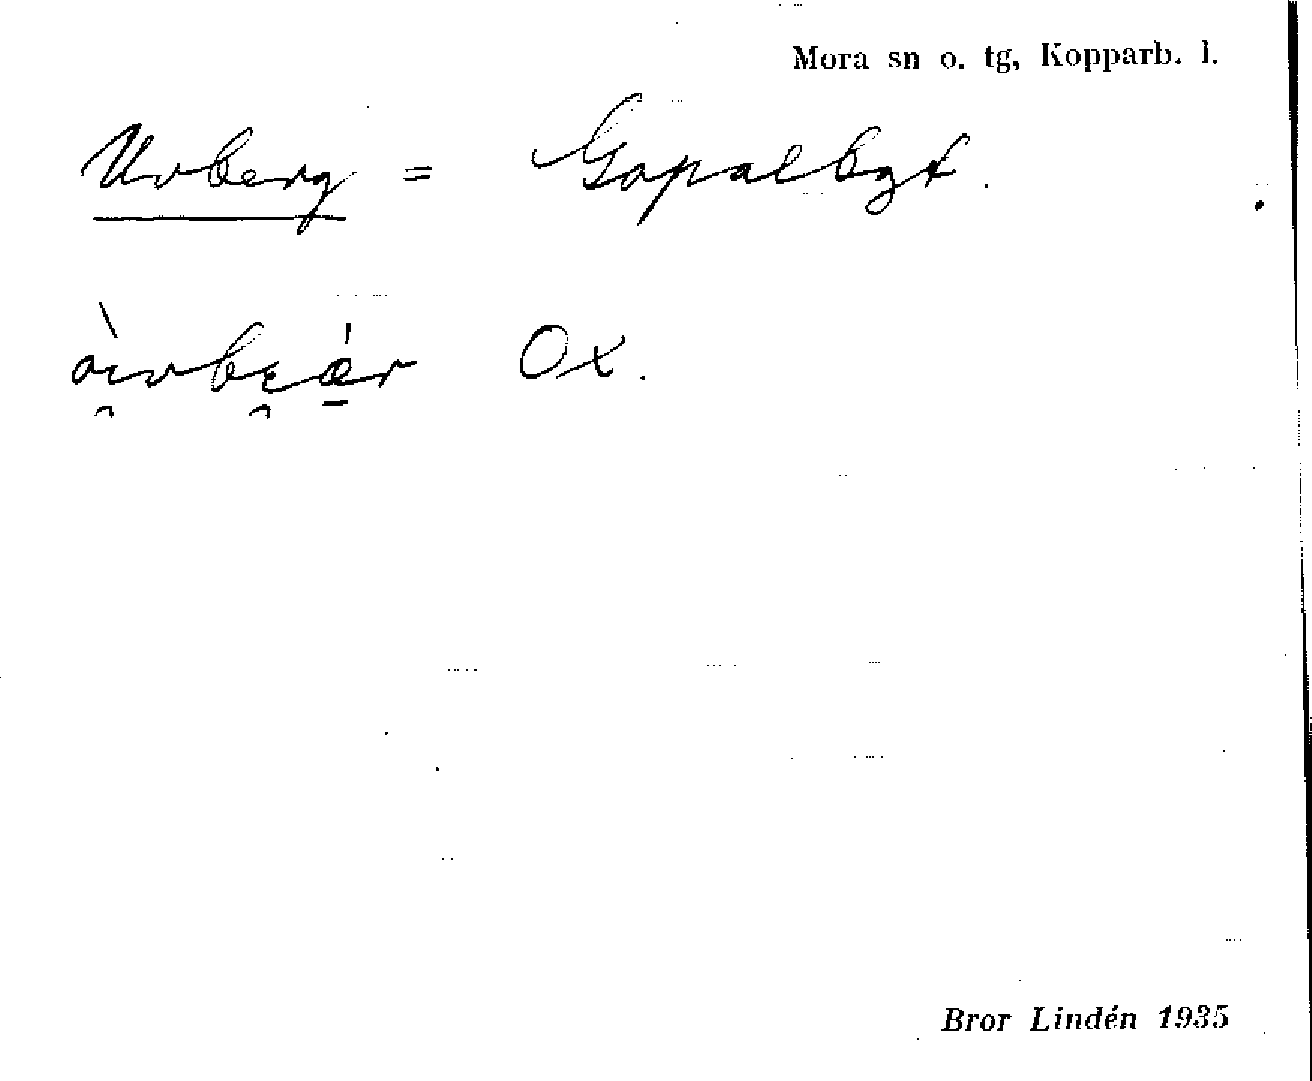 Mora sn o. tg, Kopparb. l.
Uvberg = Gopalbgt.
òivbeár Ox.
Bror Lindén 1935